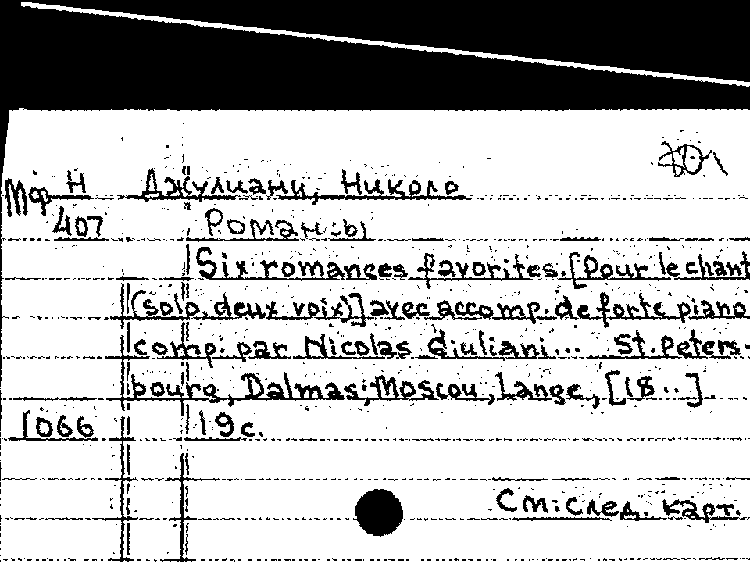 Мф Н Джулиани, Николо
407 Романсы
Six romances favorites. [Pour le chant
(solo, deux voix)] avec accomp. de forte piano
comp. par Nicolas Giuliani... St. Peters-
bourg, Dalmas; Moscou, Lange, [18..].
1066 19 с.
См. след. карт.